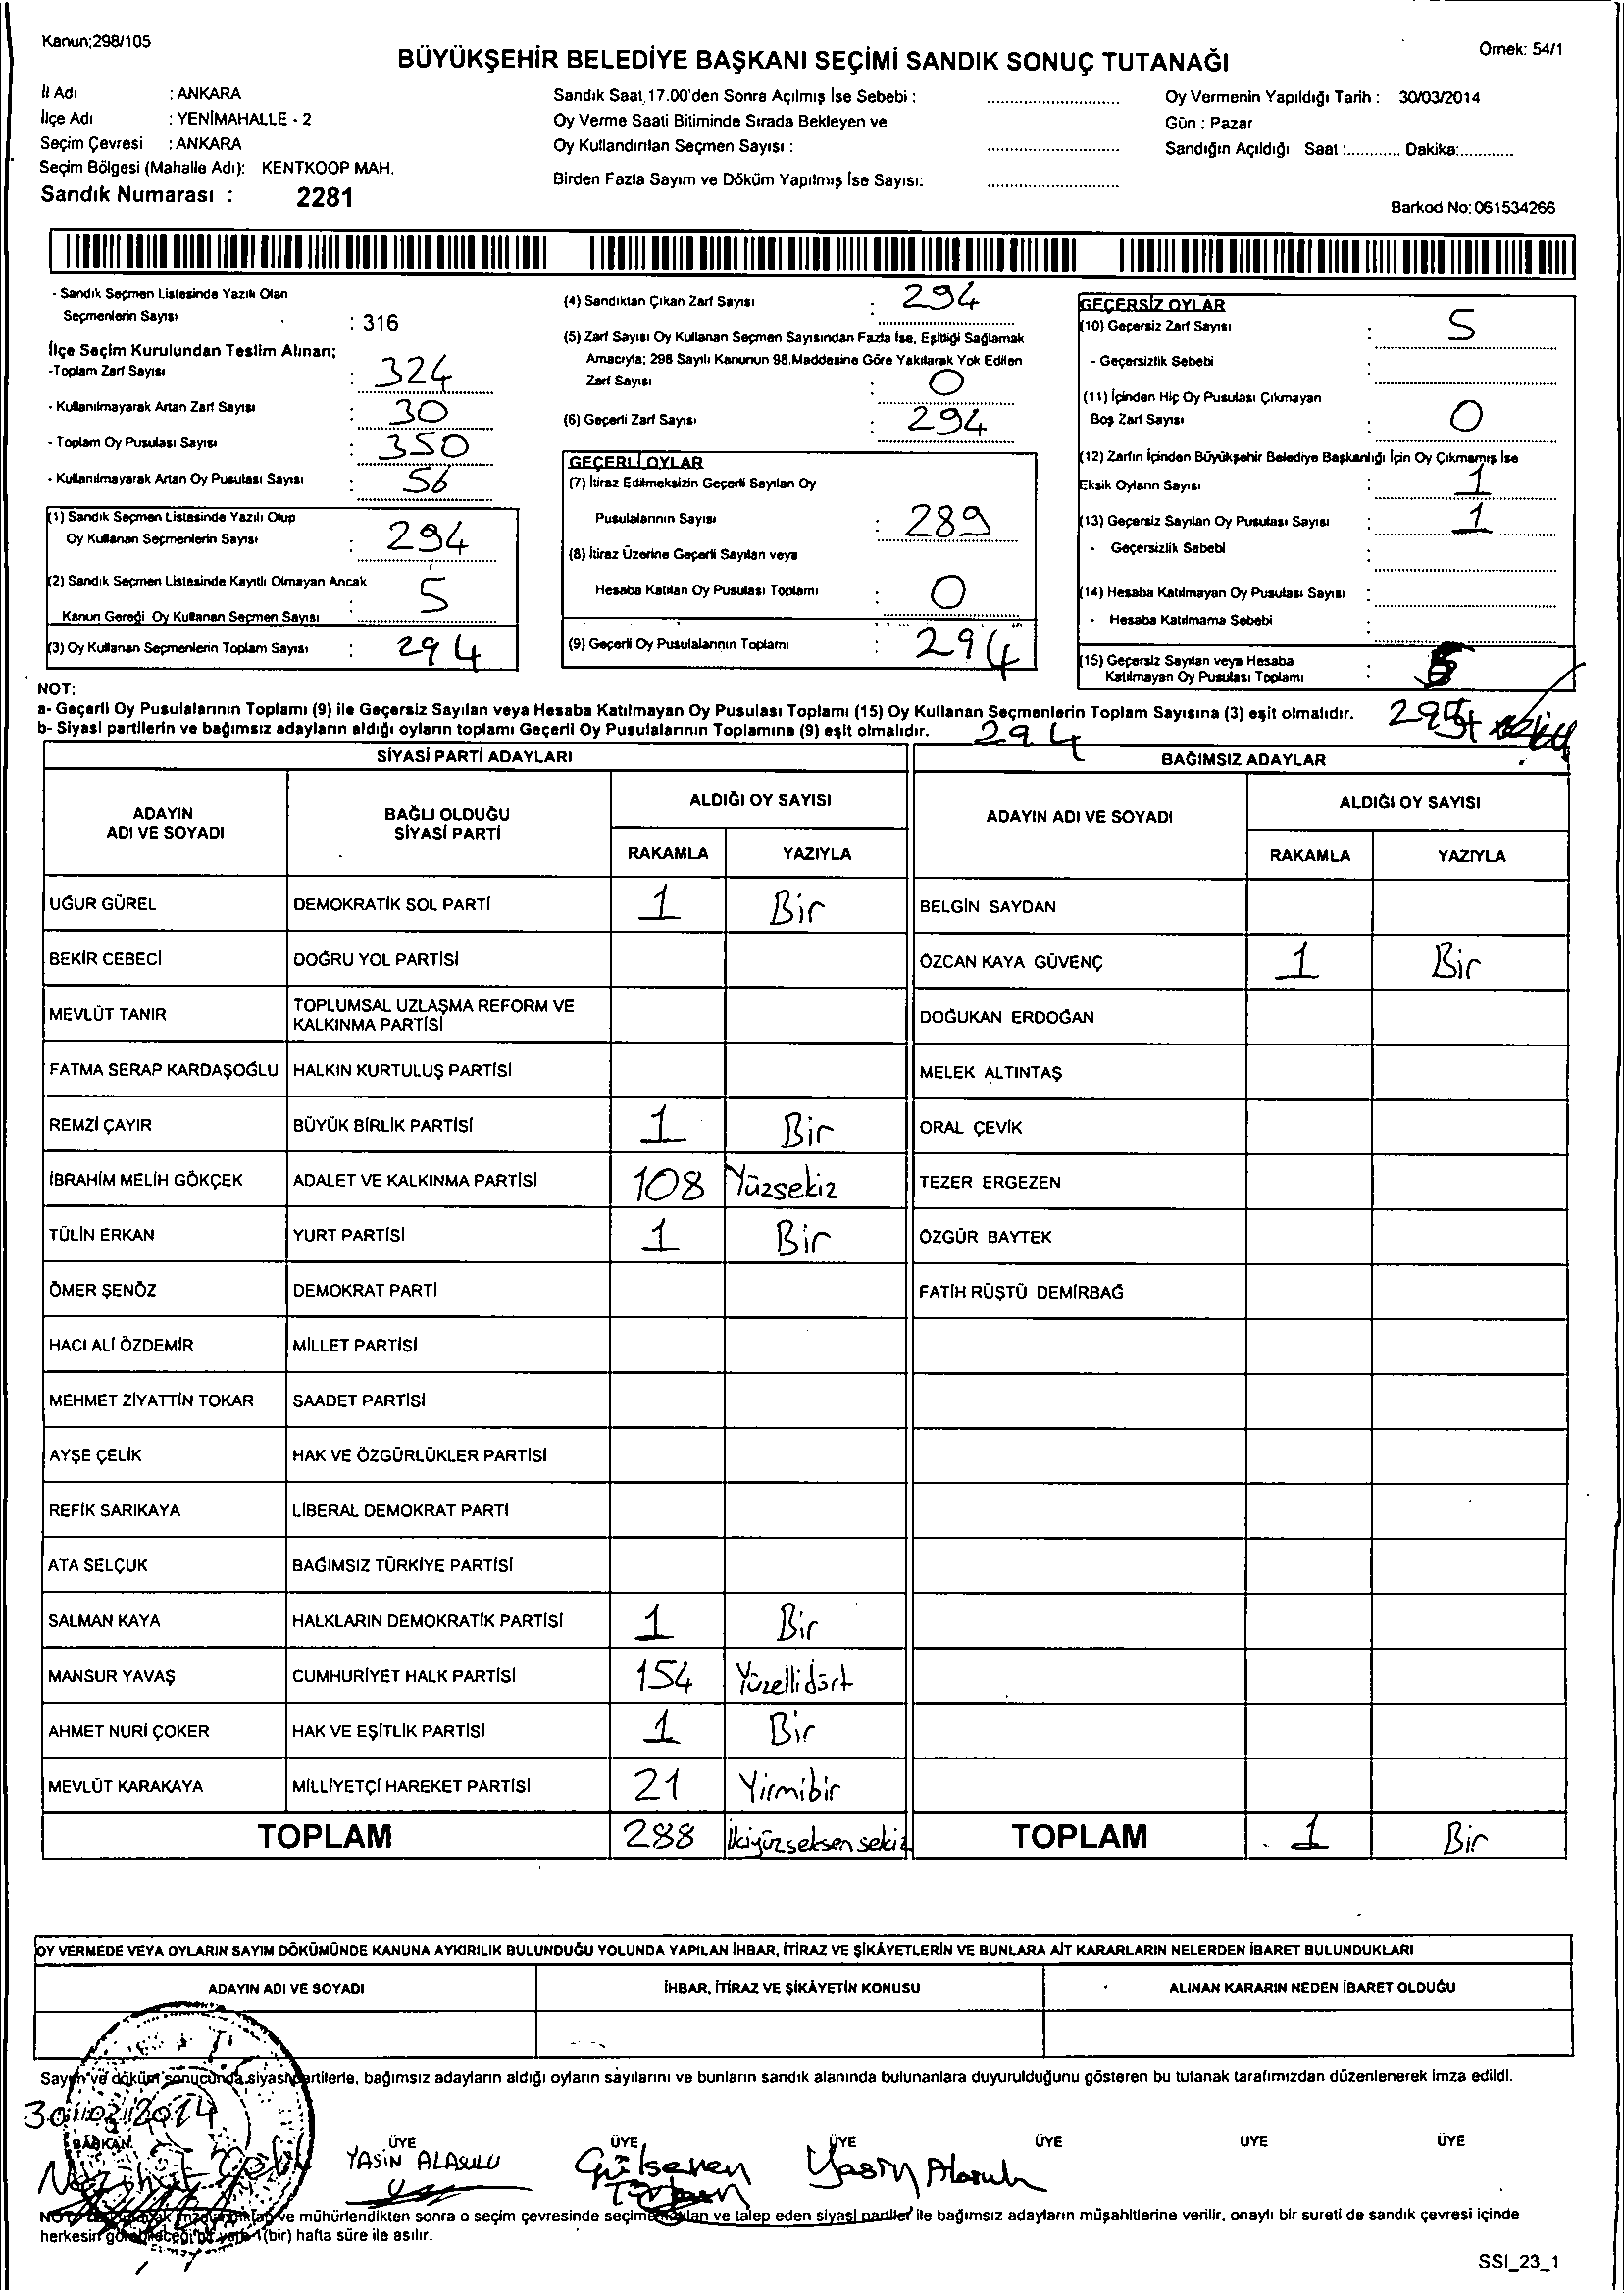 Kanun;298/105
Örnek: 54/1
BÜYÜKŞEHİR BELEDİYE BAŞKANI SEÇİMİ SANDIK SONUÇ TUTANAĞI
İl Adı : ANKARA
İlçe Adı : YENİMAHALLE - 2
Seçim Çevresi : ANKARA
Seçim Bölgesi (Mahalle Adı): KENTKOOP MAH.
Sandık Numarası : 2281
Sandık Saat 17.00'den Sonra Açılmış İse Sebebi :
Oy Verme Saati Bitiminde Sırada Bekleyen ve
Oy Kullandırılan Seçmen Sayısı :
Birden Fazla Sayım ve Döküm Yapılmış İse Sayısı:
Oy Vermenin Yapıldığı Tarih : 30/03/2014
Gün : Pazar
Sandığın Açıldığı Saat :............ Dakika:............
Barkod No: 061534266
- Sandık Seçmen Listesinde Yazılı Olan
Seçmenlerin Sayısı : 316
İlçe Seçim Kurulundan Teslim Alınan;
-Toplam Zarf Sayısı : 324
- Kullanılmayarak Artan Zarf Sayısı : 30
- Toplam Oy Pusulası Sayısı : 350
- Kullanılmayarak Artan Oy Pusulası Sayısı : 56
(1) Sandık Seçmen Listesinde Yazılı Olup
Oy Kullanan Seçmenlerin Sayısı : 294
(2) Sandık Seçmen Listesinde Kayıtlı Olmayan Ancak
Kanun Gereği Oy Kullanan Seçmen Sayısı : 5
(3) Oy Kullanan Seçmenlerin Toplam Sayısı : 294
(4) Sandıktan Çıkan Zarf Sayısı : 294
(5) Zarf Sayısı Oy Kullanan Seçmen Sayısından Fazla İse, Eşitliği Sağlamak
Amacıyla; 298 Sayılı Kanunun 98.Maddesine Göre Yakılarak Yok Edilen
Zarf Sayısı : 0
(6) Geçerli Zarf Sayısı : 294
GEÇERLİ OYLAR
(7) İtiraz Edilmeksizin Geçerli Sayılan Oy
Pusulalarının Sayısı : 289
(8) İtiraz Üzerine Geçerli Sayılan veya
Hesaba Katılan Oy Pusulası Toplamı : 0
(9) Geçerli Oy Pusulalarının Toplamı : 294
GEÇERSİZ OYLAR
(10) Geçersiz Zarf Sayısı : 5
- Geçersizlik Sebebi :
(11) İçinden Hiç Oy Pusulası Çıkmayan
Boş Zarf Sayısı : 0
(12) Zarfın İçinden Büyükşehir Belediye Başkanlığı İçin Oy Çıkmamış İse
Eksik Oyların Sayısı : 1
(13) Geçersiz Sayılan Oy Pusulası Sayısı : 1
- Geçersizlik Sebebi :
(14) Hesaba Katılmayan Oy Pusulası Sayısı :
- Hesaba Katılmama Sebebi :
(15) Geçersiz Sayılan veya Hesaba
Katılmayan Oy Pusulası Toplamı :
NOT:
a- Geçerli Oy Pusulalarının Toplamı (9) ile Geçersiz Sayılan veya Hesaba Katılmayan Oy Pusulası Toplamı (15) Oy Kullanan Seçmenlerin Toplam Sayısına (3) eşit olmalıdır.
b- Siyasi partilerin ve bağımsız adayların aldığı oyların toplamı Geçerli Oy Pusulalarının Toplamına (9) eşit olmalıdır. 294
SİYASİ PARTİ ADAYLARI
BAĞIMSIZ ADAYLAR
ADAYIN ADI VE SOYADI
BAĞLI OLDUĞU SİYASİ PARTİ
ALDIĞI OY SAYISI
RAKAMLA YAZIYLA
ADAYIN ADI VE SOYADI
ALDIĞI OY SAYISI
RAKAMLA YAZIYLA
UĞUR GÜREL DEMOKRATİK SOL PARTİ 1 Bir BELGİN SAYDAN
BEKİR CEBECİ DOĞRU YOL PARTİSİ ÖZCAN KAYA GÜVENÇ 1 Bir
MEVLÜT TANIR TOPLUMSAL UZLAŞMA REFORM VE KALKINMA PARTİSİ DOĞUKAN ERDOĞAN
FATMA SERAP KARDAŞOĞLU HALKIN KURTULUŞ PARTİSİ MELEK ALTINTAŞ
REMZİ ÇAYIR BÜYÜK BİRLİK PARTİSİ 1 Bir ORAL ÇEVİK
İBRAHİM MELİH GÖKÇEK ADALET VE KALKINMA PARTİSİ 108 Yüzsekiz TEZER ERGEZEN
TÜLİN ERKAN YURT PARTİSİ 1 Bir ÖZGÜR BAYTEK
ÖMER ŞENÖZ DEMOKRAT PARTİ FATİH RÜŞTÜ DEMİRBAĞ
HACI ALİ ÖZDEMİR MİLLET PARTİSİ
MEHMET ZİYATTİN TOKAR SAADET PARTİSİ
AYŞE ÇELİK HAK VE ÖZGÜRLÜKLER PARTİSİ
REFİK SARIKAYA LİBERAL DEMOKRAT PARTİ
ATA SELÇUK BAĞIMSIZ TÜRKİYE PARTİSİ
SALMAN KAYA HALKLARIN DEMOKRATİK PARTİSİ 1 Bir
MANSUR YAVAŞ CUMHURİYET HALK PARTİSİ 154 Yüzellidört
AHMET NURİ ÇOKER HAK VE EŞİTLİK PARTİSİ 1 Bir
MEVLÜT KARAKAYA MİLLİYETÇİ HAREKET PARTİSİ 21 Yirmibir
TOPLAM 288 İkiyüzseksensekiz TOPLAM 1 Bir
OY VERMEDE VEYA OYLARIN SAYIM DÖKÜMÜNDE KANUNA AYKIRILIK BULUNDUĞU YOLUNDA YAPILAN İHBAR, İTİRAZ VE ŞİKÂYETLERİN VE BUNLARA AİT KARARLARIN NELERDEN İBARET BULUNDUKLARI
ADAYIN ADI VE SOYADI İHBAR, İTİRAZ VE ŞİKÂYETİN KONUSU ALINAN KARARIN NEDEN İBARET OLDUĞU
Sayım ve döküm sonucunda siyasi partilerle, bağımsız adayların aldığı oyların sayılarını ve bunların sandık alanında bulunanlara duyurulduğunu gösteren bu tutanak tarafımızdan düzenlenerek imza edildi.
30/03/2014
BAŞKAN ÜYE ÜYE ÜYE ÜYE ÜYE ÜYE
YASİN ALASULU Gülseren Yasin Alasulu
ve mühürlendikten sonra o seçim çevresinde seçime katılan ve talep eden siyasi partiler ile bağımsız adayların müşahitlerine verilir, onaylı bir sureti de sandık çevresi içinde
herkesin görebileceği bir yere 1 (bir) hafta süre ile asılır.
SSI_23_1